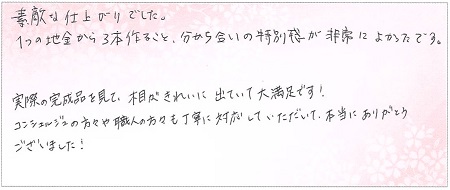 素敵な仕上がりでした。
1つの地金から3本作ること、分かち合いの特別感が非常によかったです。
実際の完成品を見て、相がきれいに出ていて大満足です!
コンシェルジュの方々や職人の方々も丁寧に対応していただいて、本当にありがとう
ございました!